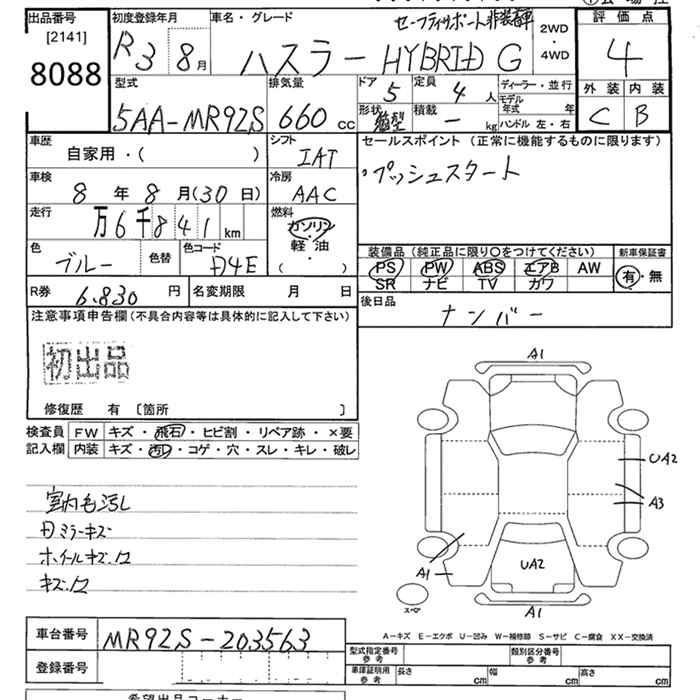 出品番号
[2141]
8088
初度登録年月
R3 8月
車名・グレード
セーフティサポート非装着車
ハスラー HYBRID G
2WD
・
4WD
評価点
4
外装 内装
C B
型式
5AA-MR92S
排気量
660 cc
ドア 5
定員 4 人
形状 箱型
積載 - kg
ディーラー・並行
モデル年式 年
ハンドル 左・右
車歴
自家用・( )
シフト
IAT
セールスポイント (正常に機能するものに限ります)
プッシュスタート
車検
8年8月(30日)
冷房
AAC
走行
万6千841km
燃料
ガソリン
・
軽油
( )
色
ブルー
色替
色コード
D4E
装備品 (純正品に限り〇をつけてください)
PS PW ABS エアB AW
SR ナビ TV カワ
新車保証書
有・無
R券 6,830 円
名変期限 月 日
後日品
ナンバー
注意事項申告欄(不具合内容等は具体的に記入して下さい)
初出品
修復歴 有 [箇所 ]
検査員記入欄
FW キズ・飛石・ヒビ割・リペア跡・×要
内装 キズ・汚れ・コゲ・穴・スレ・キレ・破レ
室内毛汚し
ミラーキズ
ホイールキズ
キズ
A1
UA2
A3
A1
UA2
A1
スペア
A-キズ E-エクボ U-凹み W-補修跡 S-サビ C-腐食 XX-交換済
車台番号 MR92S-203563
登録番号
型式指定番号 参考
類別区分番号 参考
車庫証明用 参考
長さ cm 幅 cm 高さ cm
希望出品コーナー